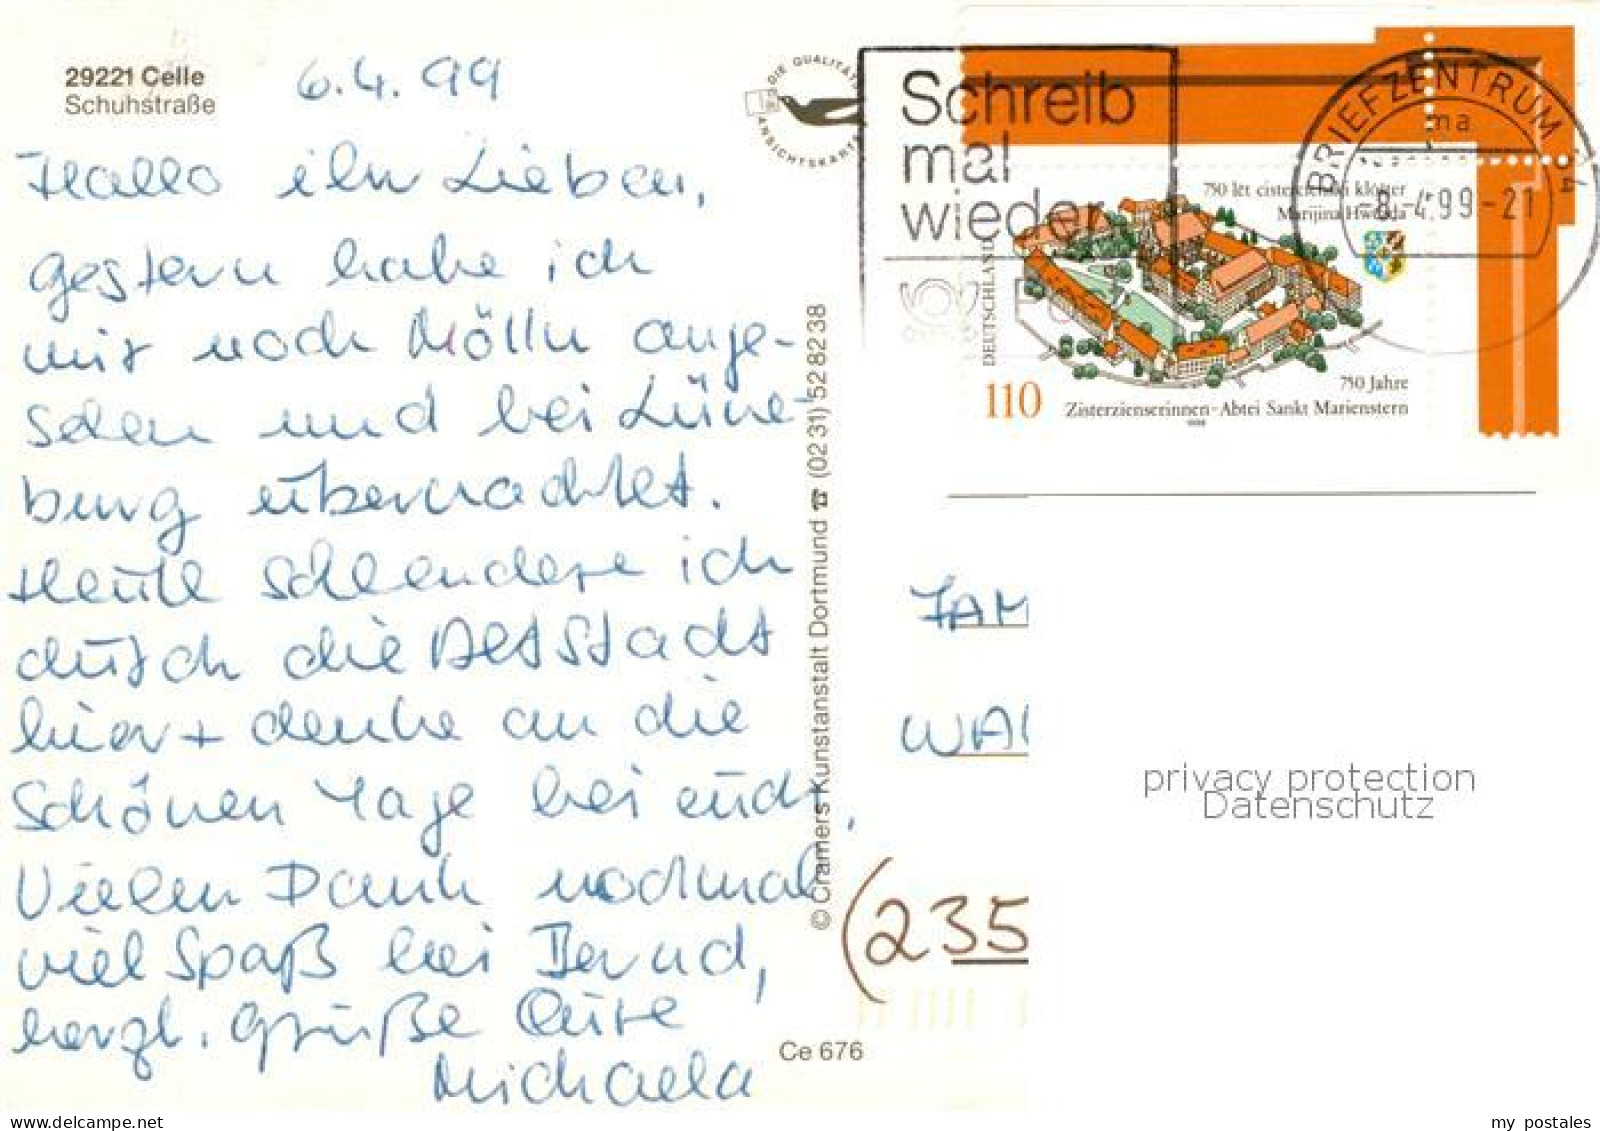 29221 Celle
Schuhstraße
6.4.99
Hallo ihr Lieben,
gestern habe ich
mir noch Mölln ange-
sehen und bei Lüne-
burg übernachtet.
Heute schlendere ich
durch die Altstadt
hier + denke an die
schönen Tage bei euch,
Vielen Dank nochmal
viel Spaß bei Bernd,
herzl. Grüße Eure
Michaela
DIE QUALITÄTS
ANSICHTSKARTE
© Cramers Kunstanstalt Dortmund ☎ (02 31) 52 82 38
Ce 676
Schreib
mal
wieder
BRIEFZENTRUM 04
ma
-8.-4.99-21
750 let cistercienski klóšter
Marijina Hwězda
DEUTSCHLAND
110
750 Jahre
Zisterzienserinnen-Abtei Sankt Marienstern
1998
JAM
WA
(235
privacy protection
Datenschutz
www.delcampe.net
my_postales